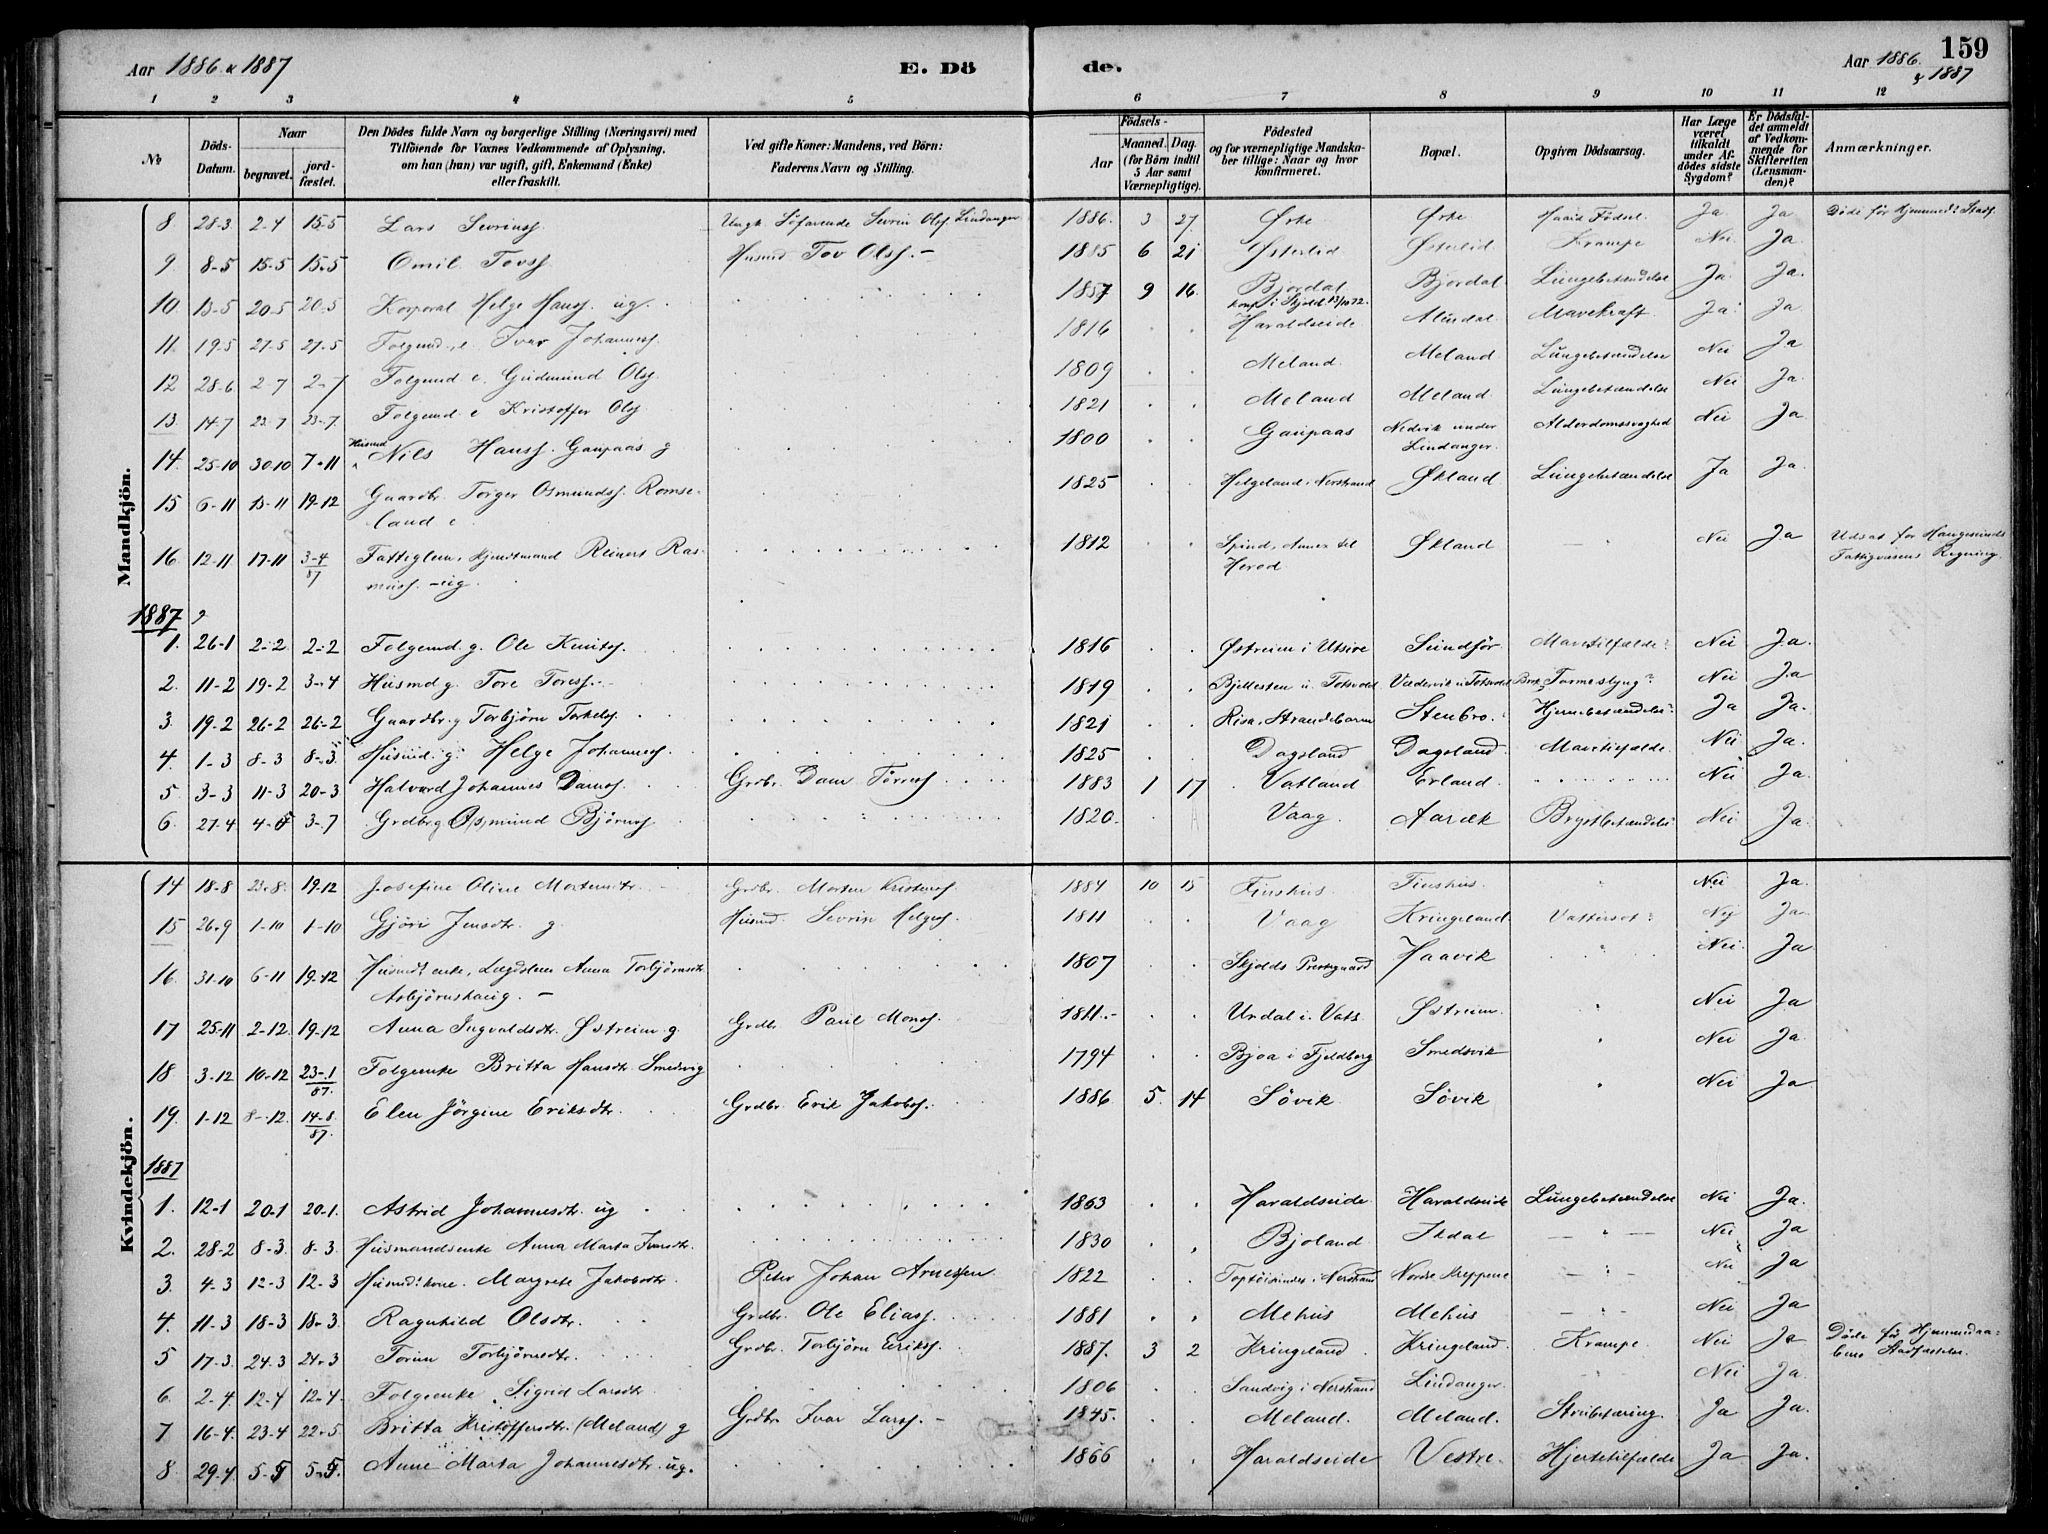 Aar 1886 & 1887 E. Dö de. Aar 1886. & 1887 159
1 2 3 4 5 6 7 8 9 10 11 12
№ Döds-Datum. Naar begravet. jord-fæstet. Den Dödes fulde Navn og borgerlige Stilling (Næringsvei) med Tilföiende for Voxnes Vedkommende af Oplysning, om han (hun) var ugift, gift, Enkemand (Enke) eller fraskilt. Ved gifte Koner: Mandens, ved Börn: Faderens Navn og Stilling. Aar Födsels- Maaned. Dag. (for Börn indtil 5 Aar samt Værnepligtige). Födested og for værnepligtige Mandskaber tillige: Naar og hvor konfirmeret. Bopæl. Opgiven Dödsaarsag. Har Læge været tilkaldt under Afdödes sidste Sygdom? Er Dödsfaldet anmeldt af Vedkommende for Skifteretten (Lensmanden)? Anmærkninger.
Mandkjön.
8 28-3 2-4 15-5 Lars Sevrinss. Ungk. Söfarende Sevrin Olss. Lindanger 1886. 3 27. Ørke Ørke Ja Ja
9 8-5 15-5 15-5 Omil Tovss. Husmd Tov Olss. - 1885 6 21 Østerlid Østerlid Krampe Nei Ja.
10. 13-5 20-5 20-5 Korporal Helge Hanss. ug. 1857 9 16. Bjordal konf. i Skjold 13/10 72. Bjordal Lungebetændelse Ja. Ja.
11. 19-5 27-5 27-5 Folgemd. e. Ivar Johanness. 1816 Haraldseide. Alndal Mavekræft Ja. Ja
12 28-6 2-7 2-7 Folgemd e. Gudmund Olss. 1809 Meland. Meland. Lungebetændelse Nei Ja
13. 14-7 23-7 23-7. Folgemd e Kristoffer Olss. 1821 Meland Meland. Lungebetændelse Nei Ja.
14. 25-10 30-10 7-11 Husmd Nils Hanss. Gaupaas g 1800 Gaupaas Nedvik under Lindanger. Alderdomssvaghed Nei Ja.
15 6-11 15-11 19-12 Gaardbr. Torger Osmundss. Romse-
land e 1825 Helgeland i Nerstrand Økland Lungebetændelse Ja Ja.
16. 12-11 17-11 3-4/87 Fattiglem, Reinert Ras-
muss. - ug. 1812 Spind, Annex til Herod Økland — " Nei Ja Udsat for Haugesunds Fattigvæsens Regning.
1887
1. 26-1 2-2. 2-2 Folgemd. g. Ole Knuts. 1816 Østreim i Utsire Sundfør Mavetilfælde? Nei Ja.
2. 11-2 19-2 3-4 Husmd g. Tore Toress. - 1819 Totsvold Brok, Tarmeslyng? Nei Ja
3. 19-2 26-2 26-2 Gaardbr. g Torbjörn Torkels. 1821 Risa, Strandebarm Stenbro. Hjernebetændelse. Ja Ja.
4. 1-3 8-3 8-3. Husmd. g. Helge Johanness. 1825 Dagsland Dagsland. Mavetilfælde. Nei Ja.
5 3-3 11-3 20-3 Halvard Johannes Danes. Grdbr. Dane Törress. 1883 1 17 Vatland Erland Nei Ja.
6. 27-4 4-5 3-7 Grdbr g Osmund Bjørnss 1820. Vaag Aaræk Brystbetændelse Nei Ja.
Kvindekjön.
14 18-8 23-8. 19-12 Josefine Oline Mortensdtr. Grdbr. Morten Kristenss. 1884 10 15 Finshus. Finshus. " Nei Ja.
15 26-9 1-10 1-10 Gjöri Jensdtr. g Husmd. Sevrin Helgess. 1811 Vaag Kringeland. Vattersot? Nej Ja
16 31-10 6-11 19-12 Husmdsenke, Lægdslem Anna Torbjørnsdtr.
Asbjørnshaug. - 1807 Skjolds Prestegaard Haavik " Nei. Ja
17 25-11 2-12. 19-12 Anna Ingvaldsdtr. Østreim g. Grdbr Paul Monss. 1811.- Urdal i Vats. Østreim. " Nei Ja
18 3-12 10-12 23-1/87. Folgeenke Britta Hansdtr. Smedvig 1794 Bjoa i Fjeldberg Smedsvik " Nei Ja.
19. 1-12 8-12. 14-8/87. Elen Jörgine Eriksdtr. Grdbr. Erik Jakobss. 1886 5. 14 Søvik. Søvik " Nei Ja
1887
1. 12-1 20-1 20-1. Astrid Johannesdtr. ug 1863 Haraldseide. Haraldseide Lungebetændelse Nei Ja.
2. 28-2 8-3. 8-3. Husmandsenke Anna Marta Ivarsdtr. 1830 Bjoland. Ikdal — " — Nei Ja
3. 4-3 12-3 12-3 Husmdskone. Margrete Jakobsdtr. Peter Johan Arnessen 1822 i Nerstrand Nordre Kreppene — " Nei Ja
4. 11-3 18-3 18-3. Ragnhild Olsdtr. Grdbr. Ole Eliass. 1881 Mehus Mehus — " Nei Ja
5 17-3. 24-3 24-3 Torine Torbjørnsdtr. Grdbr. Torbjørn Erikss. 1887. 3 2 Kringeland. Kringeland. Krampe. Nei Ja Døde før Hjemmedaa-
bens Stadfæstelse.
6 2-4. 12-4 12-4. Folgeenke Sigrid Larsdtr. 1806 Sandvig i Nerstrand Lindanger. Nei Ja.
7 16-4. 23-4 22-5. Britta Kristoffersdtr. (Meland) g Grdbr. Ivar Larss. - 1845. Meland. Meland. Strubetæring. Ja Ja.
8 29-4. 5-5 5-5. Anne Marta Johannesdtr. ug. 1866 Haraldseide Vestre. Hjertetilfælde Ja Ja.